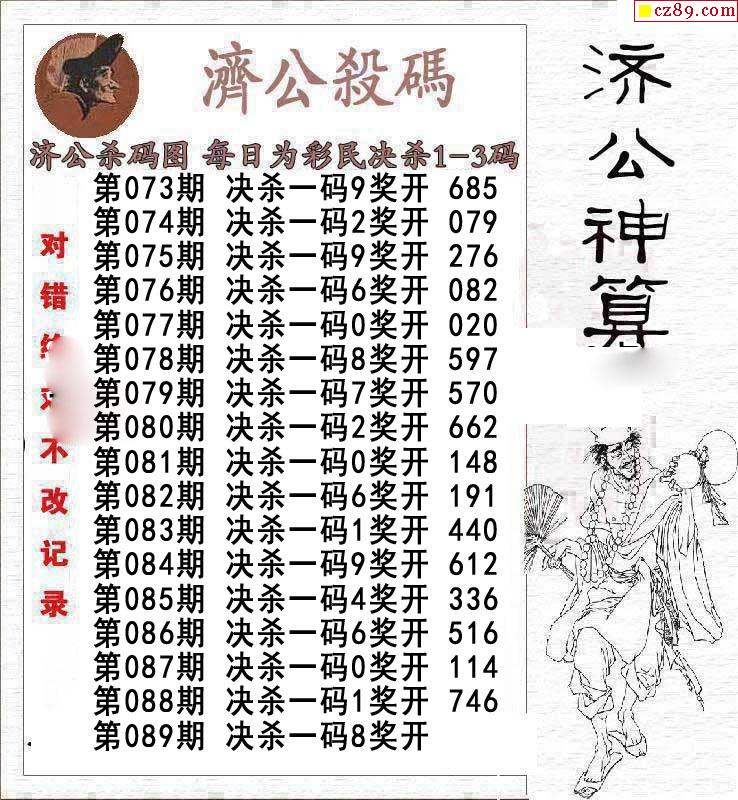 cz89.com
濟公殺碼
济公杀码图 每日为彩民决杀1-3码
第073期 决杀一码9奖开 685
第074期 决杀一码2奖开 079
第075期 决杀一码9奖开 276
第076期 决杀一码6奖开 082
第077期 决杀一码0奖开 020
第078期 决杀一码8奖开 597
第079期 决杀一码7奖开 570
第080期 决杀一码2奖开 662
第081期 决杀一码0奖开 148
第082期 决杀一码6奖开 191
第083期 决杀一码1奖开 440
第084期 决杀一码9奖开 612
第085期 决杀一码4奖开 336
第086期 决杀一码6奖开 516
第087期 决杀一码0奖开 114
第088期 决杀一码1奖开 746
第089期 决杀一码8奖开
对错不改记录
济公神算